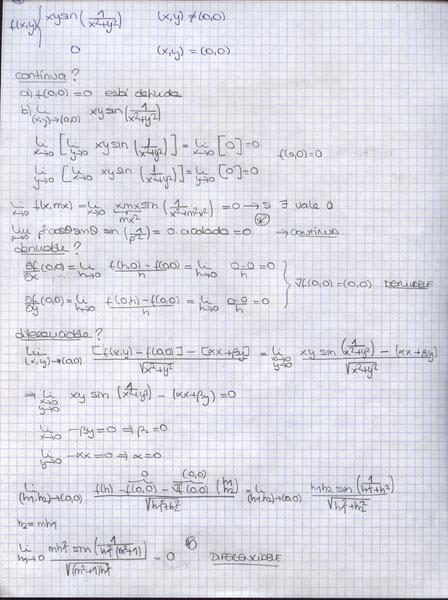 f(x,y) { xy sin(1/(x²+y²)) (x,y) ≠ (0,0)
0 (x,y) = (0,0)
continua?
a) f(0,0) = 0 está definida
b) lim (x,y)→(0,0) xy sin(1/(x²+y²))
lim x→0 [lim y→0 xy sin(1/(x²+y²))] = lim x→0 [0] = 0 f(0,0) = 0
lim y→0 [lim x→0 xy sin(1/(x²+y²))] = lim y→0 [0] = 0
lim x→0 f(x,mx) = lim x→0 xmx sin(1/(x²+m²x²)) = 0 → si ∃ vale 0.
mx²
lim ρ→0 ρ² cosθ senθ sin(1/ρ²) = 0 · acotada = 0 → continua
derivable?
∂f/∂x (0,0) = lim h→0 (f(h,0) - f(0,0))/h = lim h→0 (0-0)/h = 0
∇f(0,0) = (0,0) DERIVABLE
∂f/∂y (0,0) = lim h→0 (f(0,h) - f(0,0))/h = lim h→0 (0-0)/h = 0
diferenciable?
lim (x,y)→(0,0) ([f(x,y) - f(0,0)] - [αx+βy])/√(x²+y²) = lim x→0 y→0 (xy sin(1/(x²+y²)) - (αx+βy))/√(x²+y²)
⇒ lim x→0 y→0 xy sin(1/(x²+y²)) - (αx+βy) = 0
lim x→0 -βy = 0 ⇒ β = 0
lim y→0 -αx = 0 ⇒ α = 0
0 (0,0)
lim (h1,h2)→(0,0) (f(h) - f(0,0) - ∇f(0,0) (h1 h2))/√(h1²+h2²) = lim (h1,h2)→(0,0) (h1h2 sin(1/(h1²+h2²)))/√(h1²+h2²)
h2 = mh1
lim h1→0 (mh1² sin(1/(h1²(m²+1))))/√((m²+1)h1²) = 0 DIFERENCIABLE